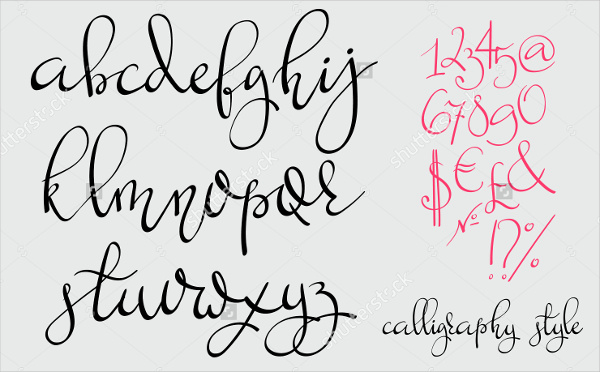 abcdefghij
klmnopqr
stuvwxyz
12345@
67890
$€£&
№!?%
calligraphy style
shutterstock